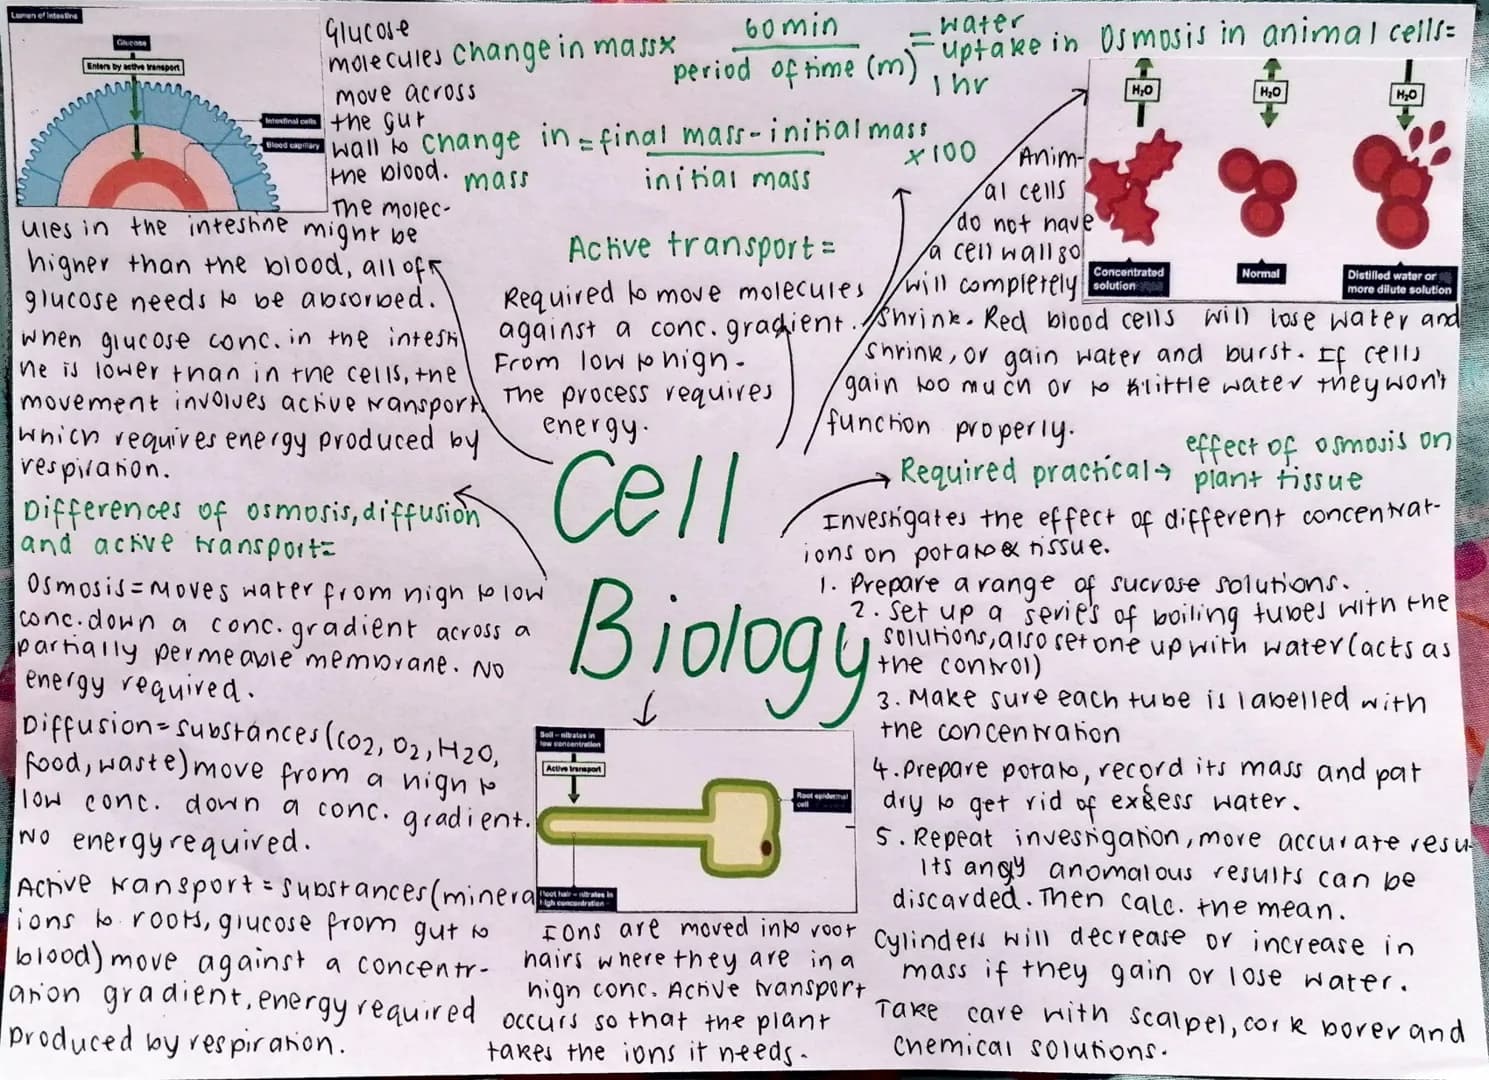 Lumen of intestine
Glucose
Enters by active transport
Intestinal cells
Blood capillary
Glucose
molecules
move across
the gut
wall to
the blood.
The molec-
ules in the intestine might be
higher than the blood, all of
glucose needs to be absorbed.
When glucose conc. in the intesti
ne is lower than in the cells, the
movement involves active transport
which requires energy produced by
respiration.
change in mass x 60 min = water
period of time (m) uptake in
1 hr
change in = final mass - initial mass x 100
mass initial mass
Active transport =
Required to move molecules
against a conc. gradient.
From low to high.
The process requires
energy.
Osmosis in animal cells =
H₂O
H₂O
H₂O
Concentrated
solution
Normal
Distilled water or
more dilute solution
Anim-
al cells
do not have
a cell wall so
will completely
shrink. Red blood cells will lose water and
shrink, or gain water and burst. If cells
gain too much or to little water they won't
function properly.
Cell
Biology
Differences of osmosis, diffusion
and active transport =
Osmosis = Moves water from high to low
conc. down a conc. gradient across a
partially permeable membrane. NO
energy required.
Diffusion = substances (CO2, O2, H2O,
food, waste) move from a high to
low conc. down a conc. gradient.
No energy required.
Active transport = substances (minera
ions to roots, glucose from gut to
blood) move against a concentr-
ation gradient, energy required
produced by respiration.
Soil – nitrates in
low concentration
Active transport
Root epidermal
cell
Root hair – nitrates in
high concentration
Ions are moved into root
hairs where they are in a
high conc. Active transport
occurs so that the plant
takes the ions it needs.
Required practical → effect of osmosis on
plant tissue
Investigates the effect of different concentrat-
ions on potato tissue.
1. Prepare a range of sucrose solutions.
2. Set up a series of boiling tubes with the
solutions, also set one up with water (acts as
the control)
3. Make sure each tube is labelled with
the concentration
4. Prepare potato, record its mass and pat
dry to get rid of excess water.
5. Repeat investigation, more accurate resu-
lts any anomalous results can be
discarded. Then calc. the mean.
Cylinders will decrease or increase in
mass if they gain or lose water.
Take care with scalpel, cork borer and
chemical solutions.